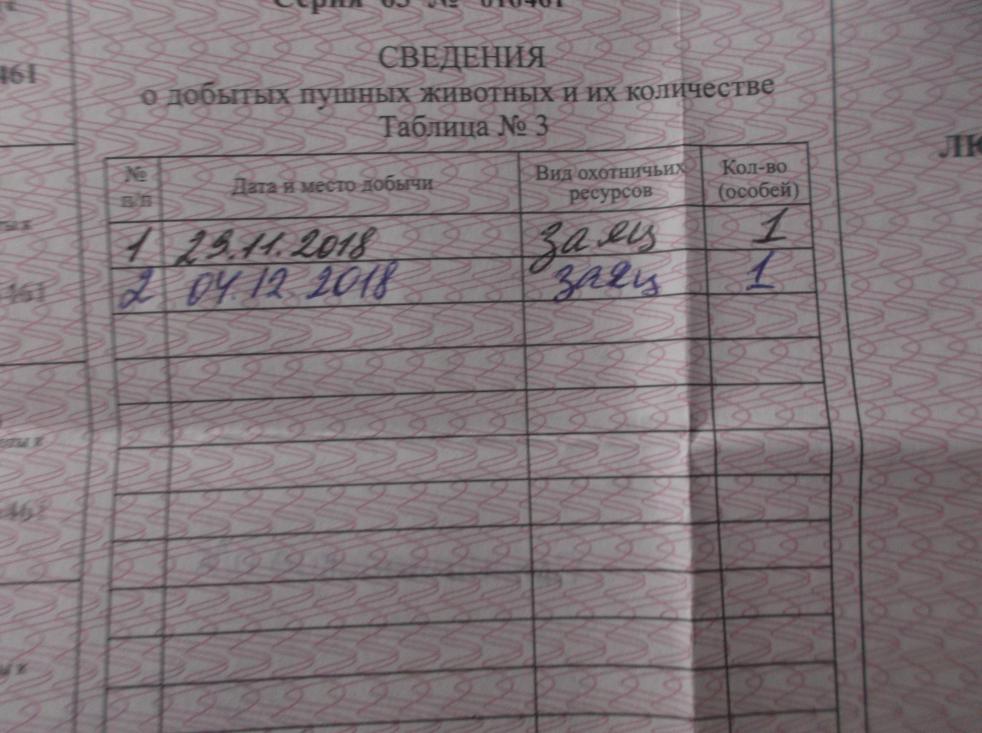 Серия 63 № 016461
СВЕДЕНИЯ
о добытых пушных животных и их количестве
Таблица № 3
№ п/п
Дата и место добычи
Вид охотничьих ресурсов
Кол-во (особей)
1 29.11.2018 заяц 1
2 04.12.2018 заяц 1
461
461
461